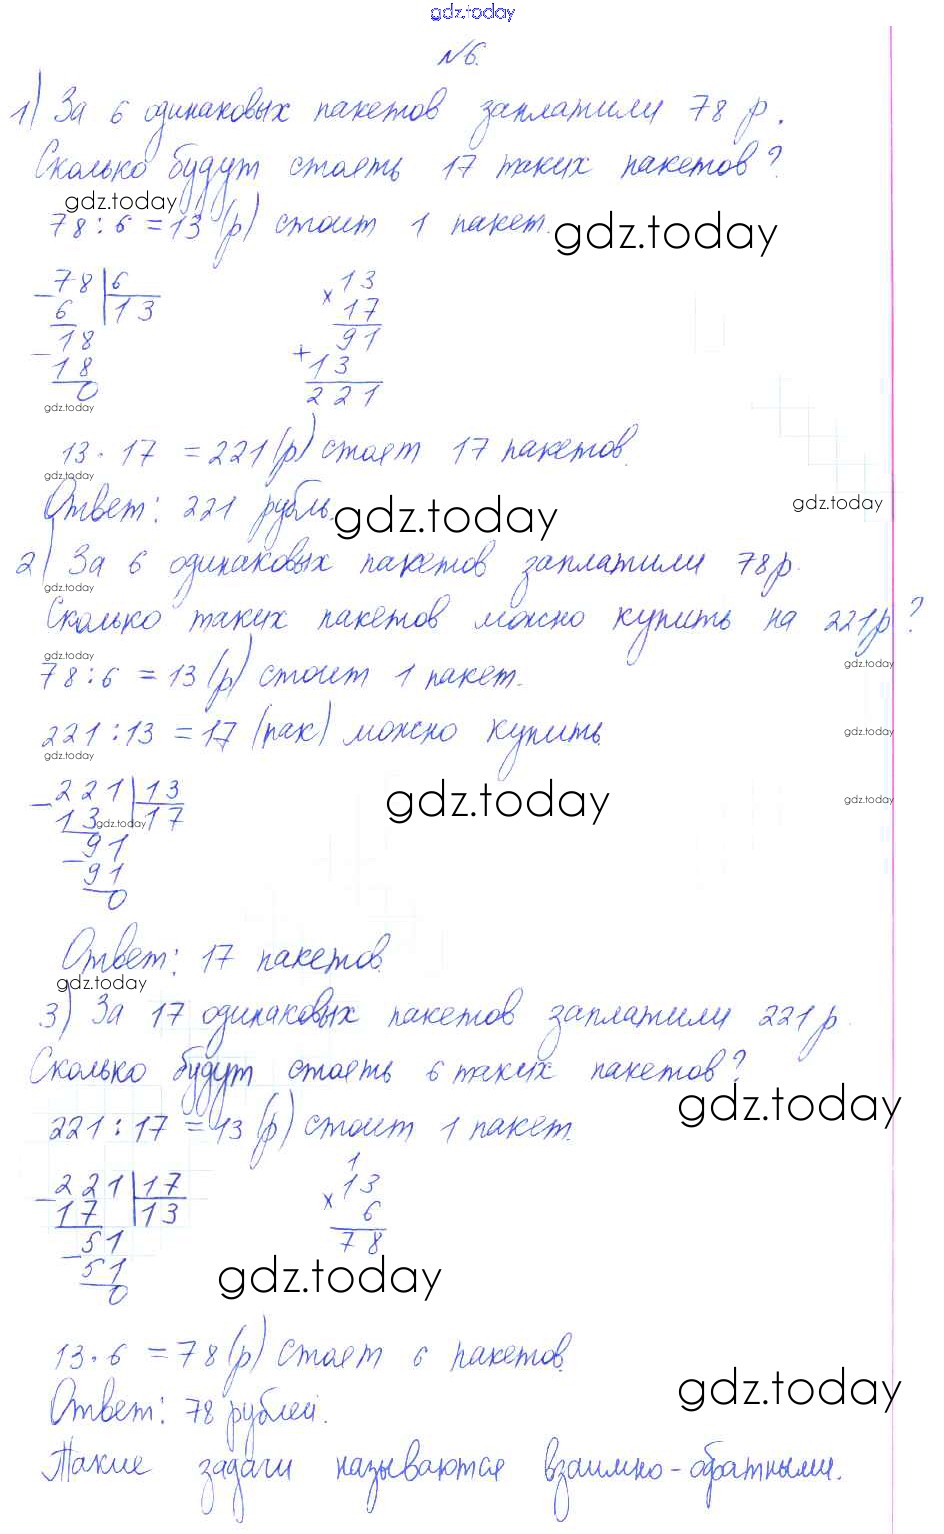 gdz.today
№6.
1) За 6 одинаковых пакетов заплатили 78 р.
Сколько будут стоять 17 таких пакетов?
gdz.today
78 : 6 = 13 (р) стоит 1 пакет.
gdz.today
- 78 | 6
6 | 13
- 18
18
0
× 13
17
91
+ 13
221
gdz.today
13 · 17 = 221 (р) стоят 17 пакетов.
gdz.today
Ответ: 221 рубль.
gdz.today
gdz.today
2) За 6 одинаковых пакетов заплатили 78 р.
gdz.today
Сколько таких пакетов можно купить на 221 р?
gdz.today
gdz.today
78 : 6 = 13 (р) стоит 1 пакет.
221 : 13 = 17 (пак) можно купить.
gdz.today
gdz.today
- 221 | 13
13 | 17
- 91
91
0
gdz.today
gdz.today
gdz.today
Ответ: 17 пакетов.
gdz.today
3) За 17 одинаковых пакетов заплатили 221 р.
Сколько будут стоять 6 таких пакетов?
gdz.today
221 : 17 = 13 (р) стоит 1 пакет.
- 221 | 17
17 | 13
- 51
51
0
1
× 13
6
78
gdz.today
13 · 6 = 78 (р) стоят 6 пакетов.
gdz.today
Ответ: 78 рублей.
Такие задачи называются взаимно-обратными.